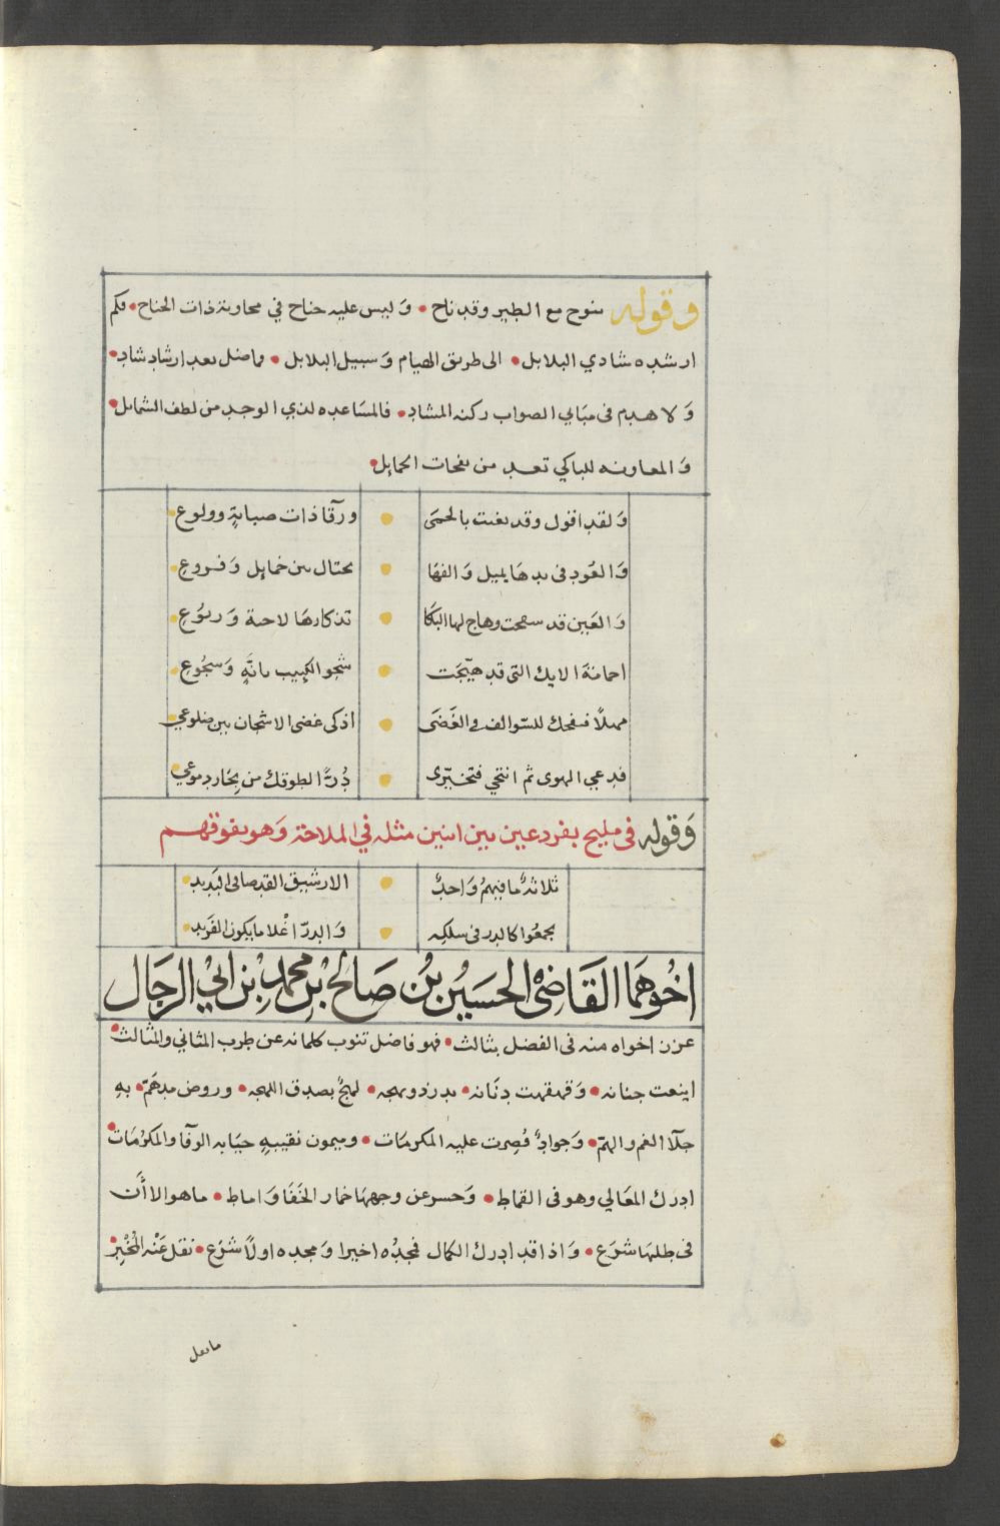 وقوله ينوح مع الطير وقد ناح • وَليس عليه جناح في محاوبة ذات الجناح • فكم
ارشده شادي البلابل • الى طريق الهيام وَسبيل البلابل • وما ضل بعد ارشاد شاد •
وَلا هدم فى مباني الصواب ركنه المشاد • فالمسَاعده لذي الوجد من لطف الشمائل •
وَالمعاونه للباكي تعد من نفحات الخمايل •
وَلقد اقول وقد نعت بالحمَى • ورقا ذات صبابةٍ وولوع
وَالعَود فى يدهَا يميل وَالفهَا • يختال من خمايل وَفروعِ
وَالعَين قد سمحت وهاج لها البكَا • تذكارهَا لاحبة وَربُوع
احمامَة الايك التى قد هيّجَت • شجو الكييب بانَّهٍ وَسجُوعِ
مهلًا فسفحك للسّوالف والغَضَى • اذكى غضى الاشجان بين ضلوعي
فدعي الهوى ثم انتحي فتخيّرى • دُرَّا لطوقك من بحار دموعي
وَقوله فى مليح بفرد عين بين اثنين مثله في الملاحة وَهو يفوقهم
ثلاثهٌ ما فيهمُ وَاحدٌ • الا رشيق القد صالى البَديد
تجمعُوا كالدر فى سلكِه • وَالدرّ اغلا ما يكون الفَريد
اخُوهمَا القَاضىْ الحسَيْن بُن صَالح بْن محمد بْن ابيْ الرجَال
عزز اخواه منه فى الفضل بثالث • فهو فاضل تنوب كلماته عن طرب المثاني والمثالث •
اينعت جنانه • وَقهقهت دنَانه • بدر ذو بهجه • لهجٌ بصدق اللهجه • وروض مدهَمّ • بهِ
جلَا الغم والهمّ • وَجوادٌ قُصِرت عليه المكرمَات • وميمون نقيبهٍ حبَابه الوفَا والمكرُمَات •
ادرك المعَالي وهو فى القماط • وَحسر عن وجههَا خمار الخفَا وَاماط • ما هو الا أَن
فى طلبهَا شرَع • وَاذا قد ادرك الكمال فمجدُه اخيرا وَمجده اولًا شرَع • نقل عَنْه المُخْبِر •
ما نعل